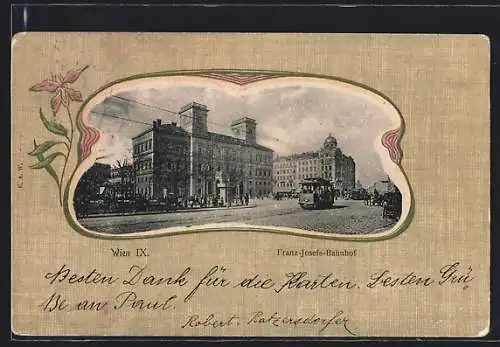 K. & W.
Wien IX.
Franz-Josefs-Bahnhof
Besten Dank für die Karten. Besten Grü
ße an Paul.
Robert. Katzersdorfer